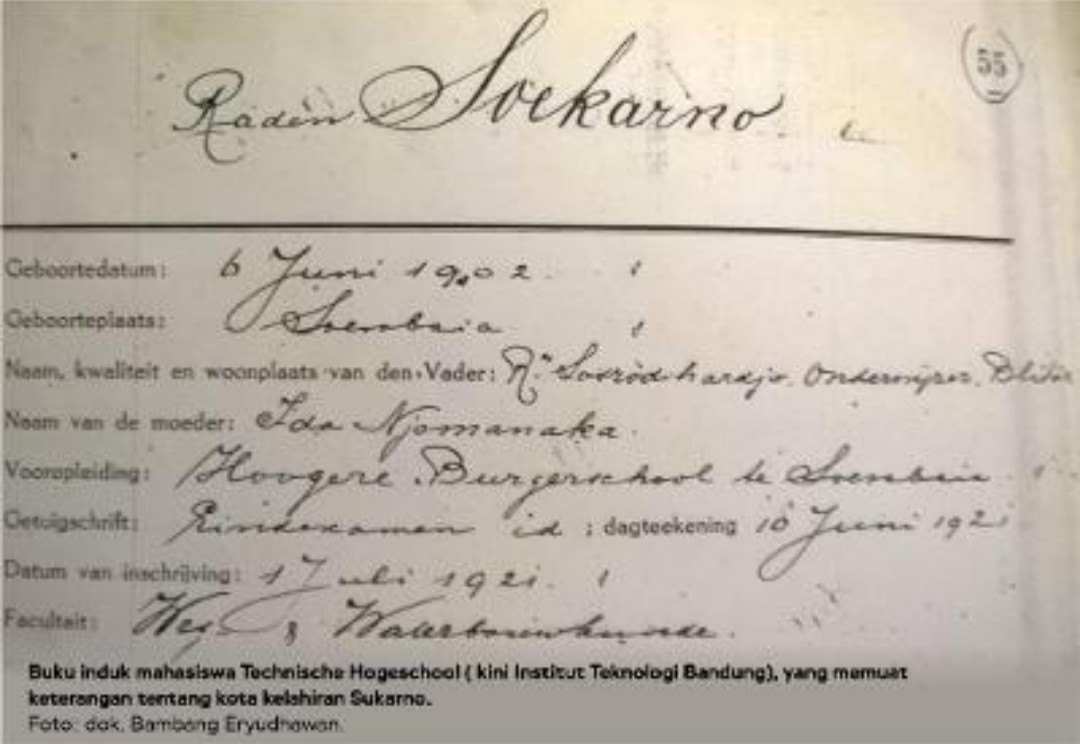 55
Raden Soekarno
Geboortedatum: 6 Juni 1902.
Geboorteplaats: Soerabaia
Naam, kwaliteit en woonplaats van den Vader: Rn Sosrodihardjo, Onderwijzer, Blitar
Naam van de moeder: Ida Njomanaka.
Vooropleiding: Hoogere Burgerschool te Soerabaia
Getuigschrift: Eindexamen id ; dagteekening 10 Juni 1921
Datum van inschrijving: 1 Juli 1921.
Faculteit: Weg & Waterbouwkunde.
Buku induk mahasiswa Technische Hogeschool ( kini Institut Teknologi Bandung), yang memuat
keterangan tentang kota kelahiran Sukarno.
Foto: dok. Bambang Eryudhawan.